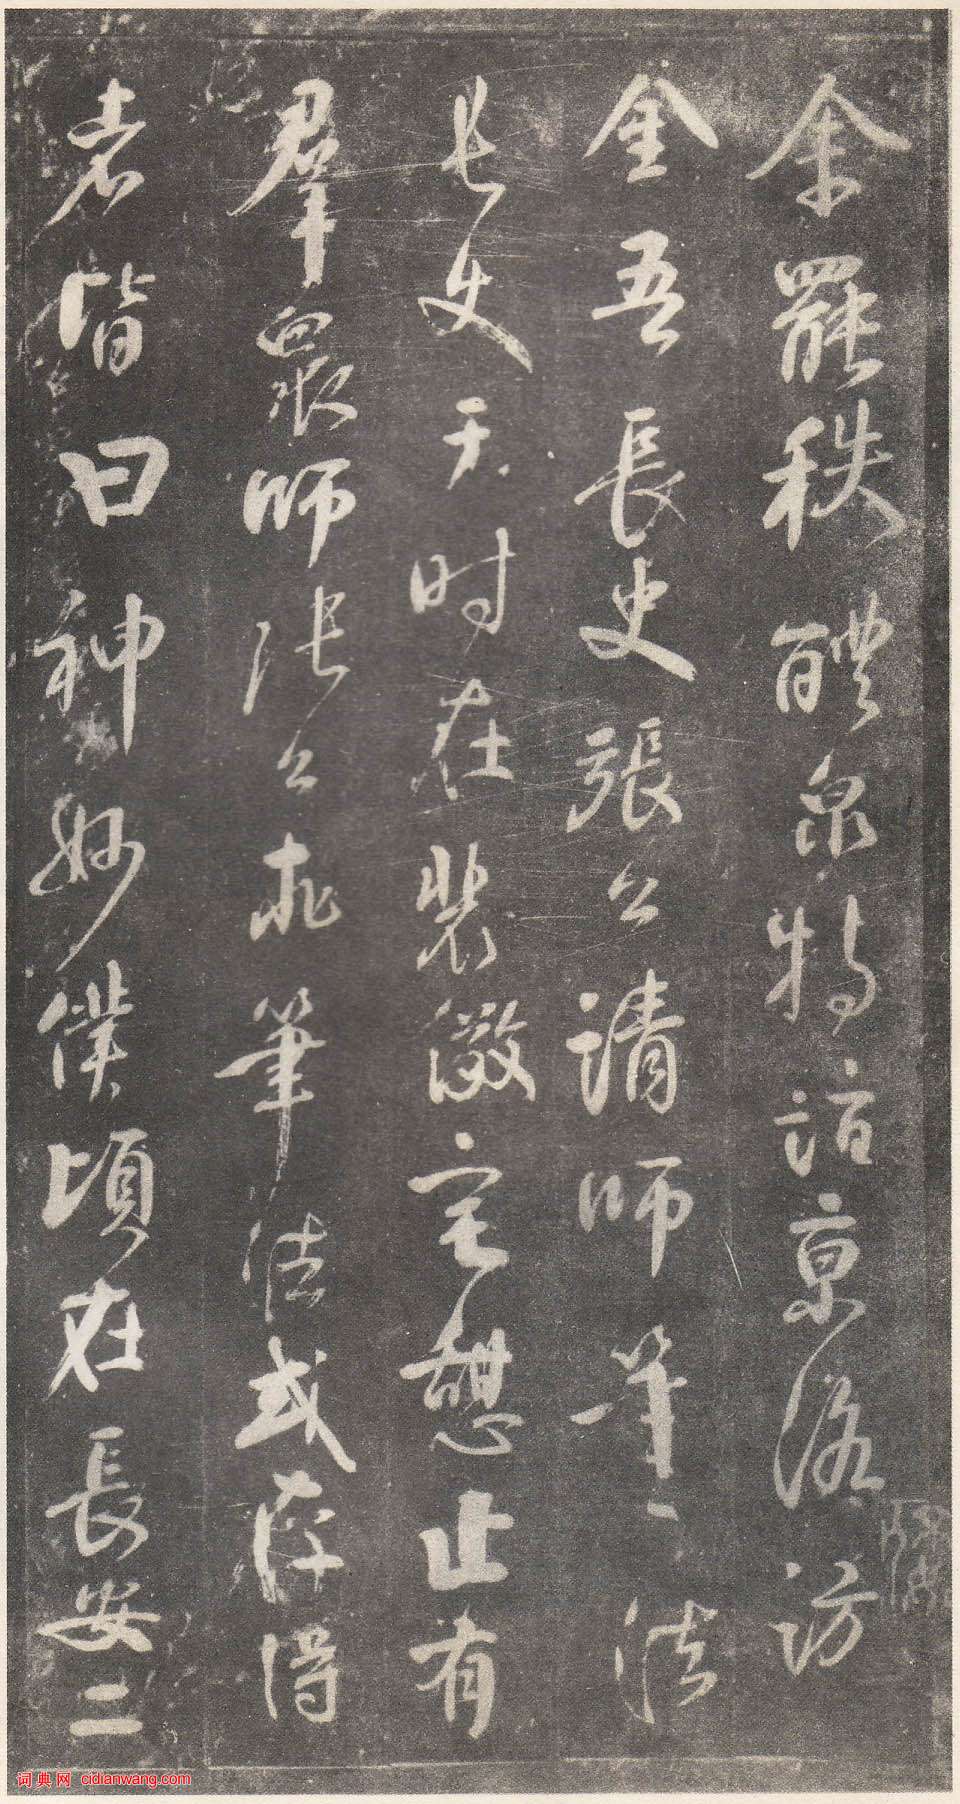 余罷秩醴泉特詣京洛訪
金吾長史張公請師筆法
長史于時在裴儆宅憩止有
羣眾師張公求筆法或存得
者皆曰神妙僕頃在長安二
词典网 cidianwang.com